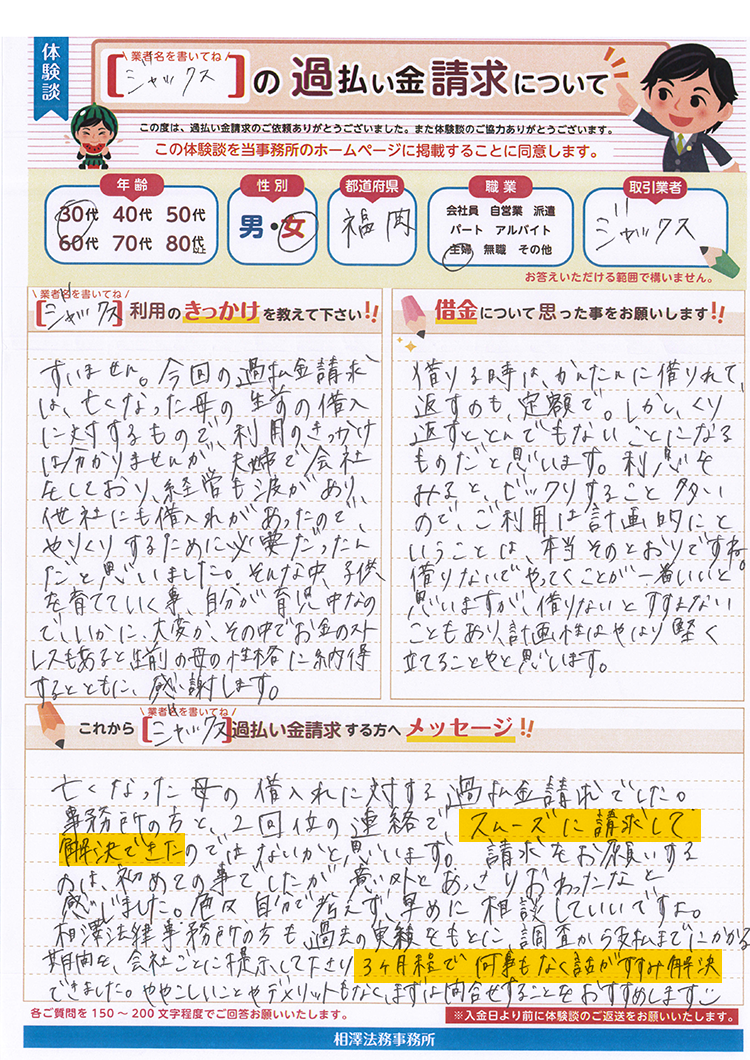 体験談
業者名を書いてね
[ジャックス]の過払い金請求について
この度は、過払い金請求のご依頼ありがとうございました。また体験談のご協力ありがとうございます。
この体験談を当事務所のホームページに掲載することに同意します。
年齢
30代 40代 50代
60代 70代 80代以上
性別
男・女
都道府県
福岡
職業
会社員 自営業 派遣
パート アルバイト
主婦 無職 その他
取引業者
ジャックス
お答えいただける範囲で構いません。
業者名を書いてね
[ジャックス]利用のきっかけを教えて下さい!!
すいません。今回の過払金請求
は、亡くなった母の生前の借入
に対するもので、利用のきっかけ
は分かりませんが、夫婦で会社
をしており、経営も波があり、
他社にも借入れがあったので、
やりくりするために必要だったん
だと思いました。そんな中、子供
を育てていく事、自分が育児中なの
で、いかに、大変か、その中でお金のスト
レスもあると生前の母の性格に納得
するとともに、感謝します。
借金について思った事をお願いします!!
借りる時は、かんたんに借りれて、
返すのも、定額で。しかし、くり
返すととんでもないことになる
ものだと思います。利息を
みると、ビックリすること多い
ので、ご利用は計画的にと
いうことは、本当そのとおりですね。
借りないでやってくことが一番いいと
思いますが、借りないとすすまない
こともあり、計画性はやはり堅く
立てることやと思います。
業者名を書いてね
これから[ジャックス]過払い金請求する方へメッセージ!!
亡くなった母の借入れに対する過払金請求でした。
事務所の方と、2回位の連絡で、スムーズに請求して
解決できたのではないかと思います。請求をお願いする
のは、初めての事でしたが意外とあっさりおわったなと
感じました。色々自分で考えず、早めに相談していいですよ。
相澤法律事務所の方も過去の実績をもとに、調査から支払までにかかる
期間を、会社ごとに提示して下さり3ヶ月程で何事もなく話がすすみ解決
できました。ややこしいことやデメリットもなく、まずは問合せすることをおすすめします
各ご質問を150～200文字程度でご回答お願いいたします。
※入金日より前に体験談のご返送をお願いいたします。
相澤法務事務所